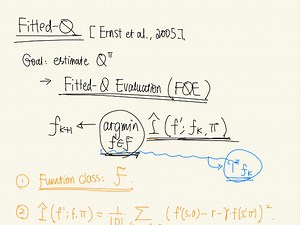 Fitted-Q [Ernst et al., 2005].
Goal: estimate Q^π
→ Fitted-Q Evaluation (FQE)
f_{k+1} ← argmin_{f'∈F} L̂(f', f_k, π)
T^π f_k
① Function class: F.
② L̂(f'; f, π) = 1/|D| Σ (f'(s,a) - r - γ f(s', π))².